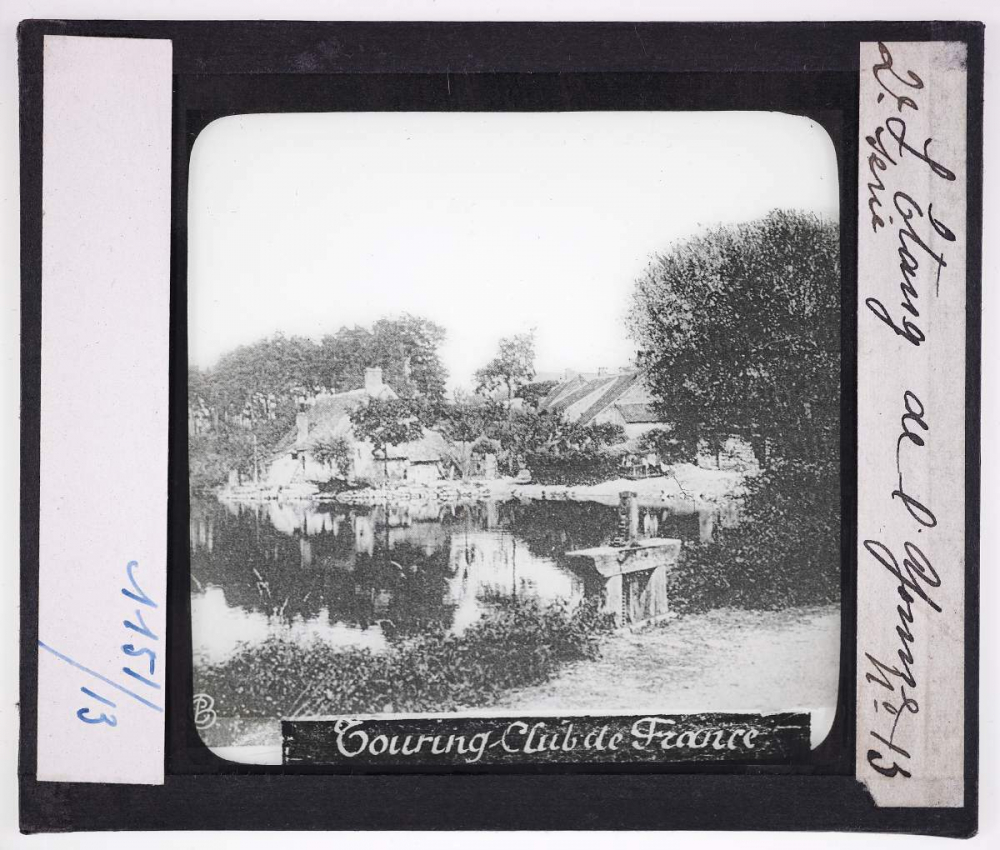 1151/13
Touring-Club de France
L'étang de l'Yonne
2e Serie
No 13